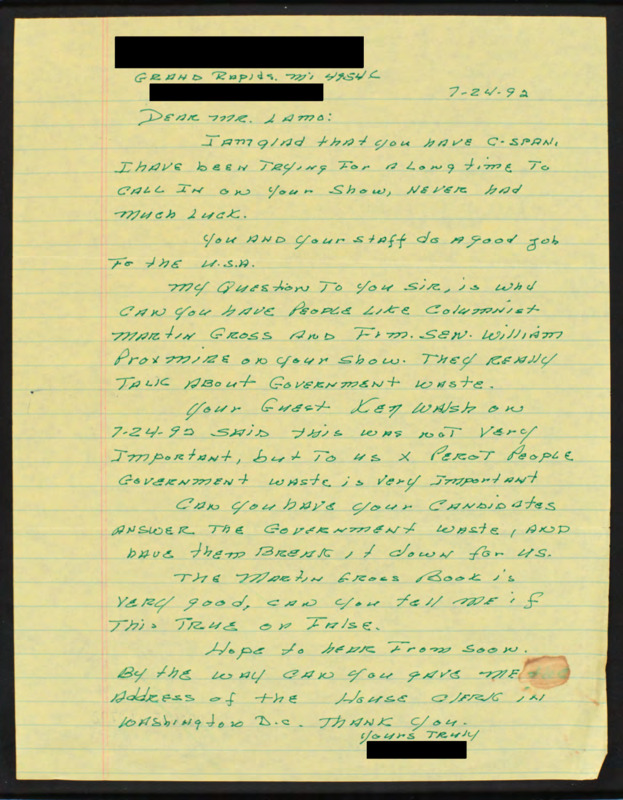 GRAND Rapids, Mi 49546
7-24-92
DEAR MR. LAMO:
I AM glad that you HAVE C-SPAN.
I HAVE bEEN TRYING FOR A Long time To
CALL IN ON your Show, NEVER had
Much Luck.
you AND your staff do A good job
Fo the U.S.A.
My Question To you SIR, is who
CAN you HAVE PEOPLE LIKE Columnist
MARTIN GROSS AND Frm. SEN. William
Proxmire on your show. They REAlly
TALK About GovERNMENT WASTE.
your Guest KEN WAlsh on
7-24-92 SAID this was not VERY
Important, but To us X PEROT PEOPLE
GOVERNMENT WASTE is VERY Important
CAN you have your CANDIDATES
ANSWER THE GOVERNMENT WASTE, AND
have them BREAK it down for us.
THE MARTIN GROSS Book is
VERY good, CAN you tell ME if
This TRUE or FAlse.
Hope to hEAR From soon.
By the way CAN you gave ME
Address of the House CLERK IN
WAShington D.C. THANK you.
yours TRuly